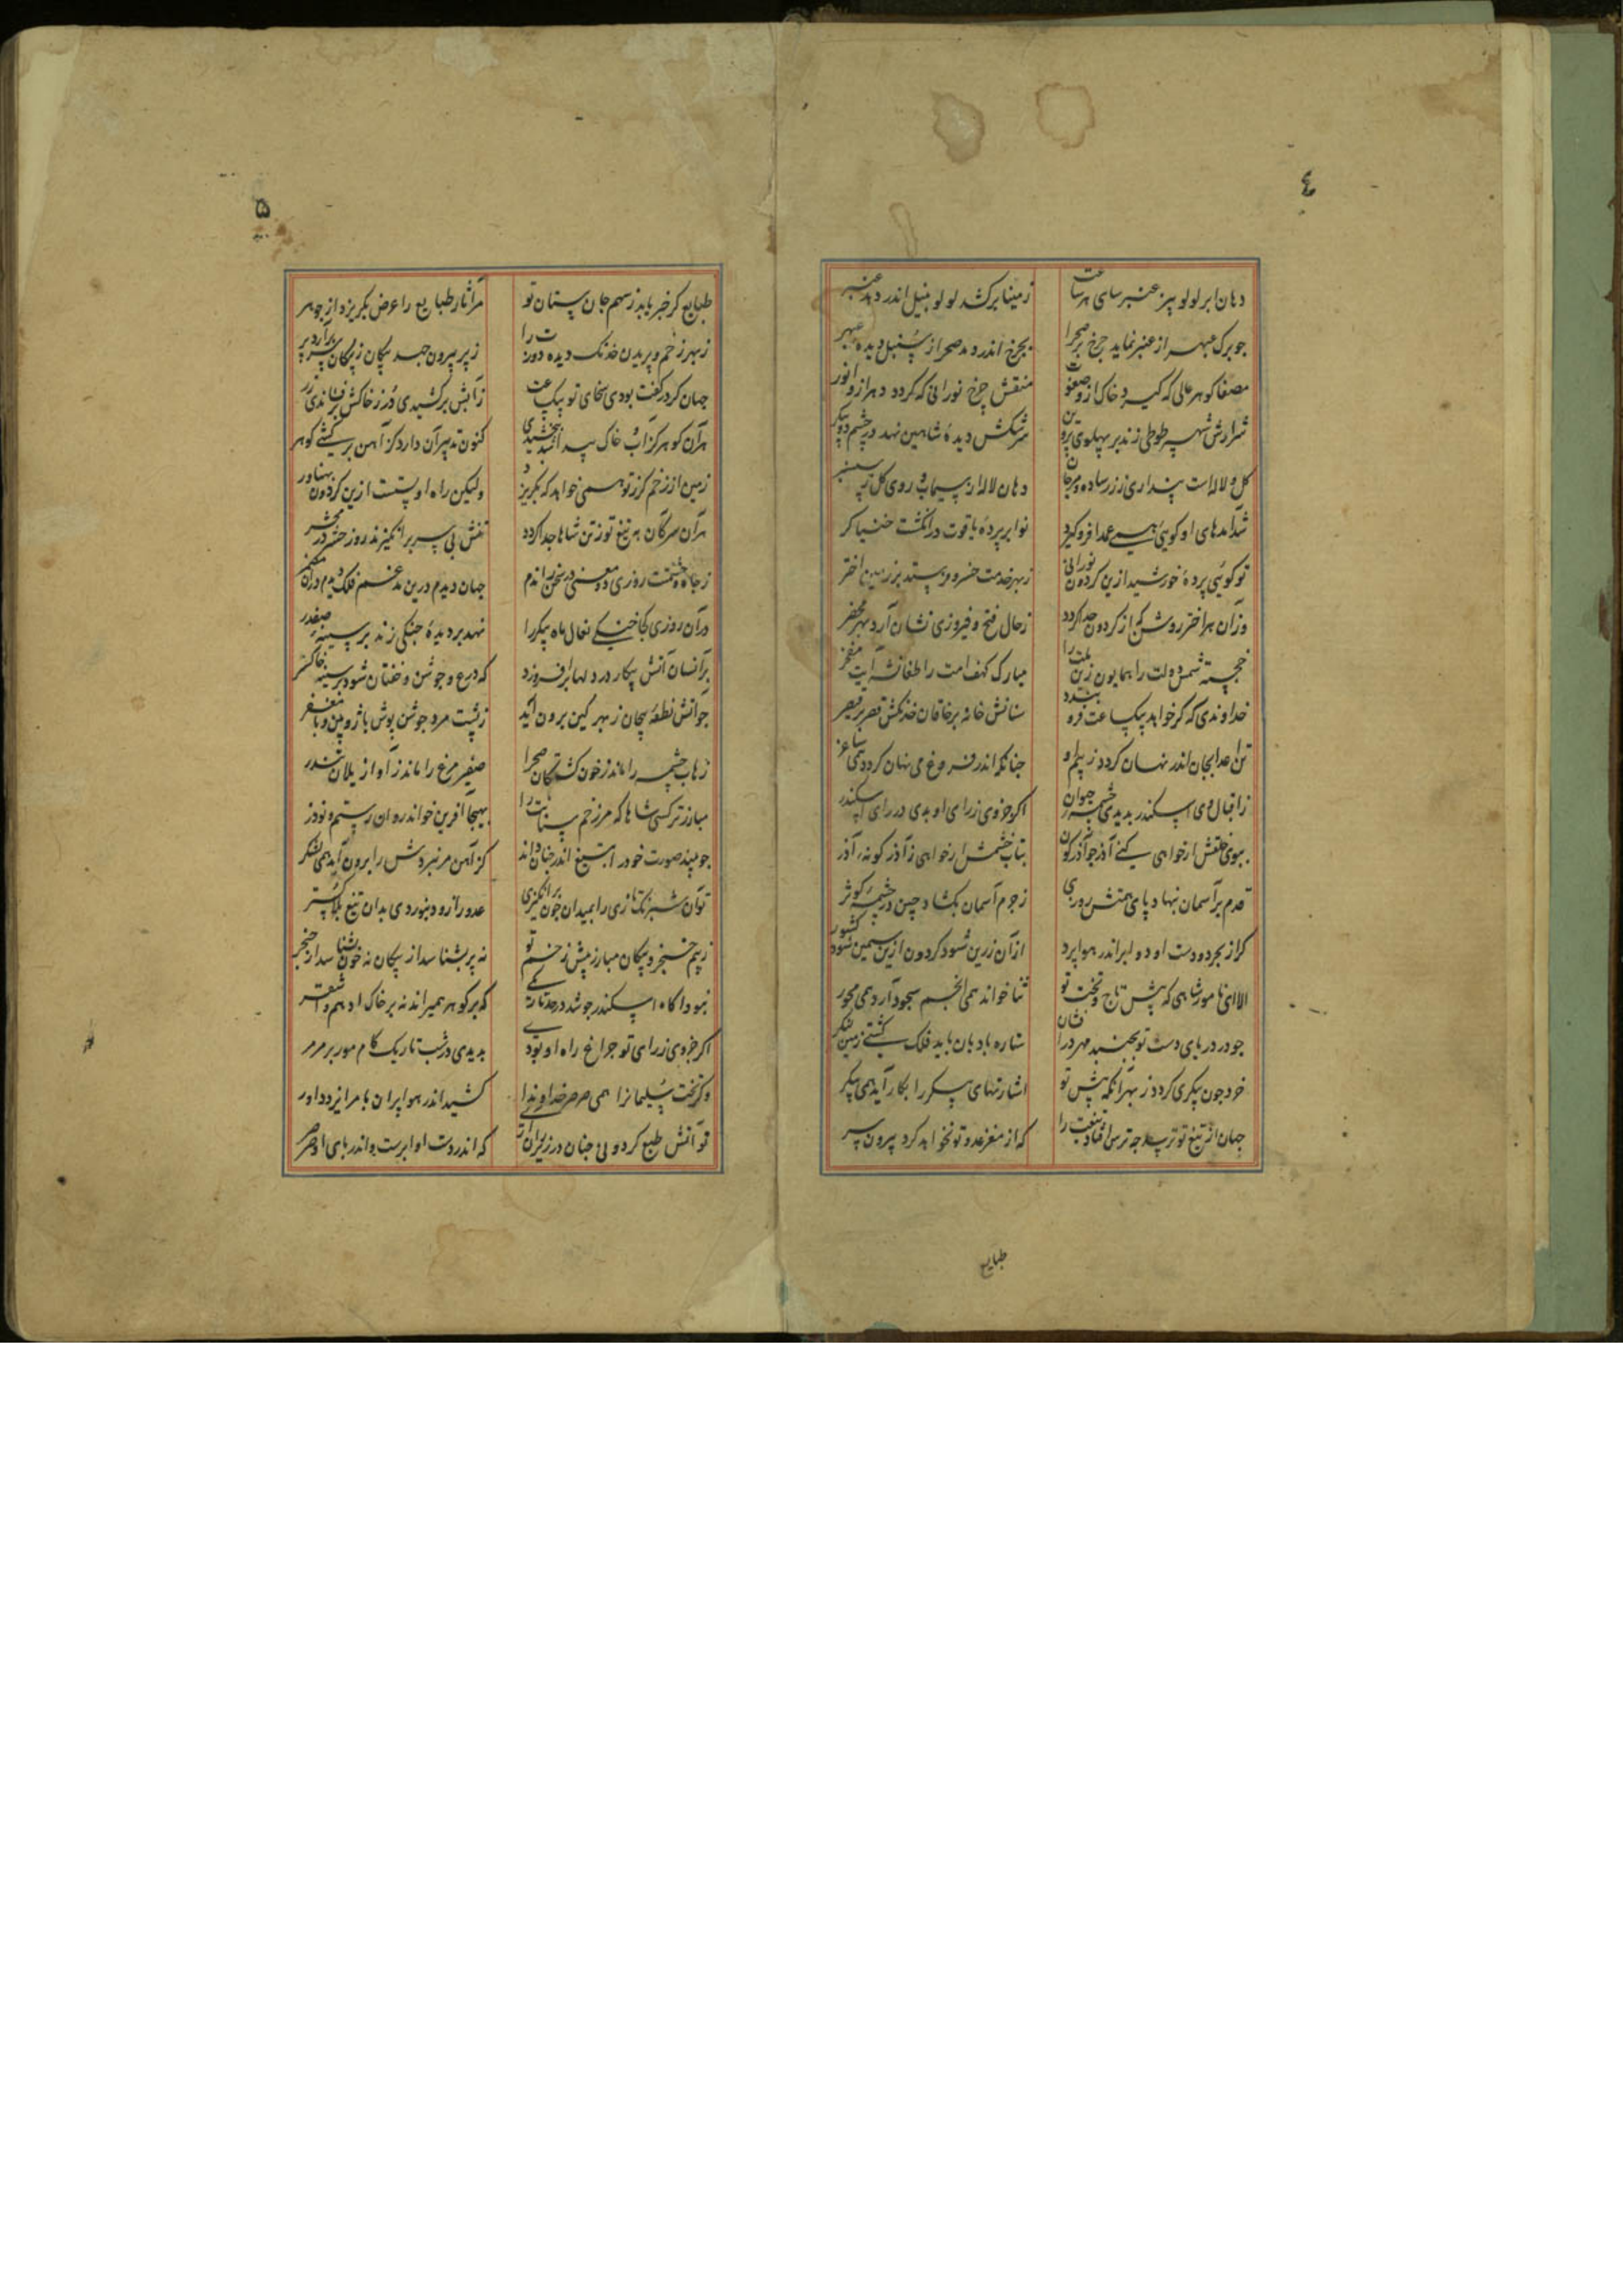 ٤
دهان ابر لولو بیز عنبرسای هر ساعت
زمینا برکشد لولو بنیل اندر دمد عنبر
جو برک عبهر از عنبر نماید جرخ بر صحرا
بجرخ اندر دمد صحرا ز سنبل دیده عبهر
مصفا کوهر عالی که کیرد خاک ازو صفوت
منقش جرخ نورانی که کردد دهر ازو انور
شرارش شهپر طوطی زند بر پهلوی پروین
سرشکش دیدهٔ شاهین نهد در چشم دو پیکر
کل و لاله است پنداری ز زر ساده و مرجان
دهان لاله پر سیماب و روی کل
نوا بر پردهٔ یاقوت در انکشت خنیاکر
تو کوئی پردهٔ خورشید ازین کردون نورانی
زبهر خدمت خسرو فرستد بر زمین اختر
وزان هر اختر روشن کز کردون جدا کردد
زحال فتح و فیروزی نشان آرد بهر محضر
خجسته شمس دولت را همایون زین ملت را
مبارک کهف امت را طغانشه آیت مفخر
خداوندی که کر خواهد بیکساعت فرو بندد
سنانش خانه بر خاقان خدنکش قصر بر قیصر
تن اعدا بجان اندر نهان کردد ز بیم او
جنانکه اندر فروغ می نهان کردد همی ساغر
ز اقبال وی اسکندر بدیدی چشمه حیوان
اکر جزوی ز رای او بدی در رای اسکندر
ببوی خلقش ار خواهی کنی آذر جو آذرکون
بتاب خشمش ار خواهی ز آذرکونه آذر
قدم بر آسمان بنهاد پای همتش روزی
ز جرم آسمان بکشاد چین در چشمهٔ کوثر
کر از بحر دو دست او دو ابر اندر هوا پرد
از آن زرین شود کردون ازین سیمین شود کشور
الا ای نامور شاهی که پیش تاج و تخت تو
ثنا خواند همی انجم سجود آرد همی محور
جو در دریای دست تو بجنبد مهر درافشان
ستاره بادبان باید فلک کشتی زمین لنکر
خرد جون پیکری کردد ز بهر آنکه پیش تو
اشارتهای پیکر را بکار آید همی پیکر
جهان از تیغ تو ترسد جه ترس افتاد تیغت را
که از مغز عدو تو نخواهد کرد بیرون سر
طبایع
۵
طبایع کر خبر یابد ز سهم جان ستان تو
مر آثار طبایع را عرض بکریزد از جوهر
ز بهر زخم و پریدن خدنک دیده دوزت را
ز پر بیرون جهد پیکان ز پیکان سر برآرد پر
جهان کرد رکفت بودی سخای تو بیکساعت
ز آبش برکشیدی در ز خاکش برفشاندی زر
هر آن کوهر کز آب و خاک پیدا شد ببخشیدی
کنون تدبیر آن دارد کز آهن برکشی کوهر
زمین از زخم کرز تو همی خواهد که بکریزد
ولیکن راه او بستست ازین کردون پهناور
هر آن سر کان بتیغ تو ز تن شاها جدا کردد
تنش بی سر برانکیزند روز حشر در محشر
ز جاه و حشمتت روزی دو معنی در سخن راندم
جهان دیدم درین مدغم فلک دیدم در آن مضمر
در آن روزی کجا خنک نعال ماه پیکر را
نهد بر دیدهٔ جنکی زند بر سینهٔ صفدر
بر آنسان آتش پیکار در دلها برافروزد
که درع و جوشن و خفتان شود بر سینه خاکستر
جو آتش نطعه پیجان ز بهر کین برون آید
ز پشت مرد جوشن پوش با ژوبین و با مغفر
زهاب چشمه را ماند ز خون کشتکان صحرا
صفیر مرغ را ماند ز آواز یلان تندر
مبارزتر کسی شاها که مر زخم سنانت را
بهیجا آفرین خواند روان رستم و نوذر
جو بیند صورت خود را بتیغ اندر جنان داند
کز آهن مر نبردش را برون آید همی لشکر
تو آن شبرنک تازی را بمیدان جون برانکیزی
عدو را زود بنوردی بدان تیغ بلا کستر
ز بیم خنجر و پیکان مبارز پیش زخم تو
نه پر بشناسد از پیکان نه خون بشناسد از خنجر
نبود آکاه اسکندر جو شد در حد تاریکی
که بر کوهر همیراند نه بر خاک ادهم و اشقر
اکر جزوی ز رای تو جراغ راه او بودی
بدیدی در شب تاریک کام مور بر مرمر
وکر تخت سلیمانرا همی صرصر خداوندا
کشید اندر هوا پران بامر ایزد داور
تو آتش طبع کردونی جنان در زیر ران آری
که اندر دست او ابرست و اندر پای او صرصر